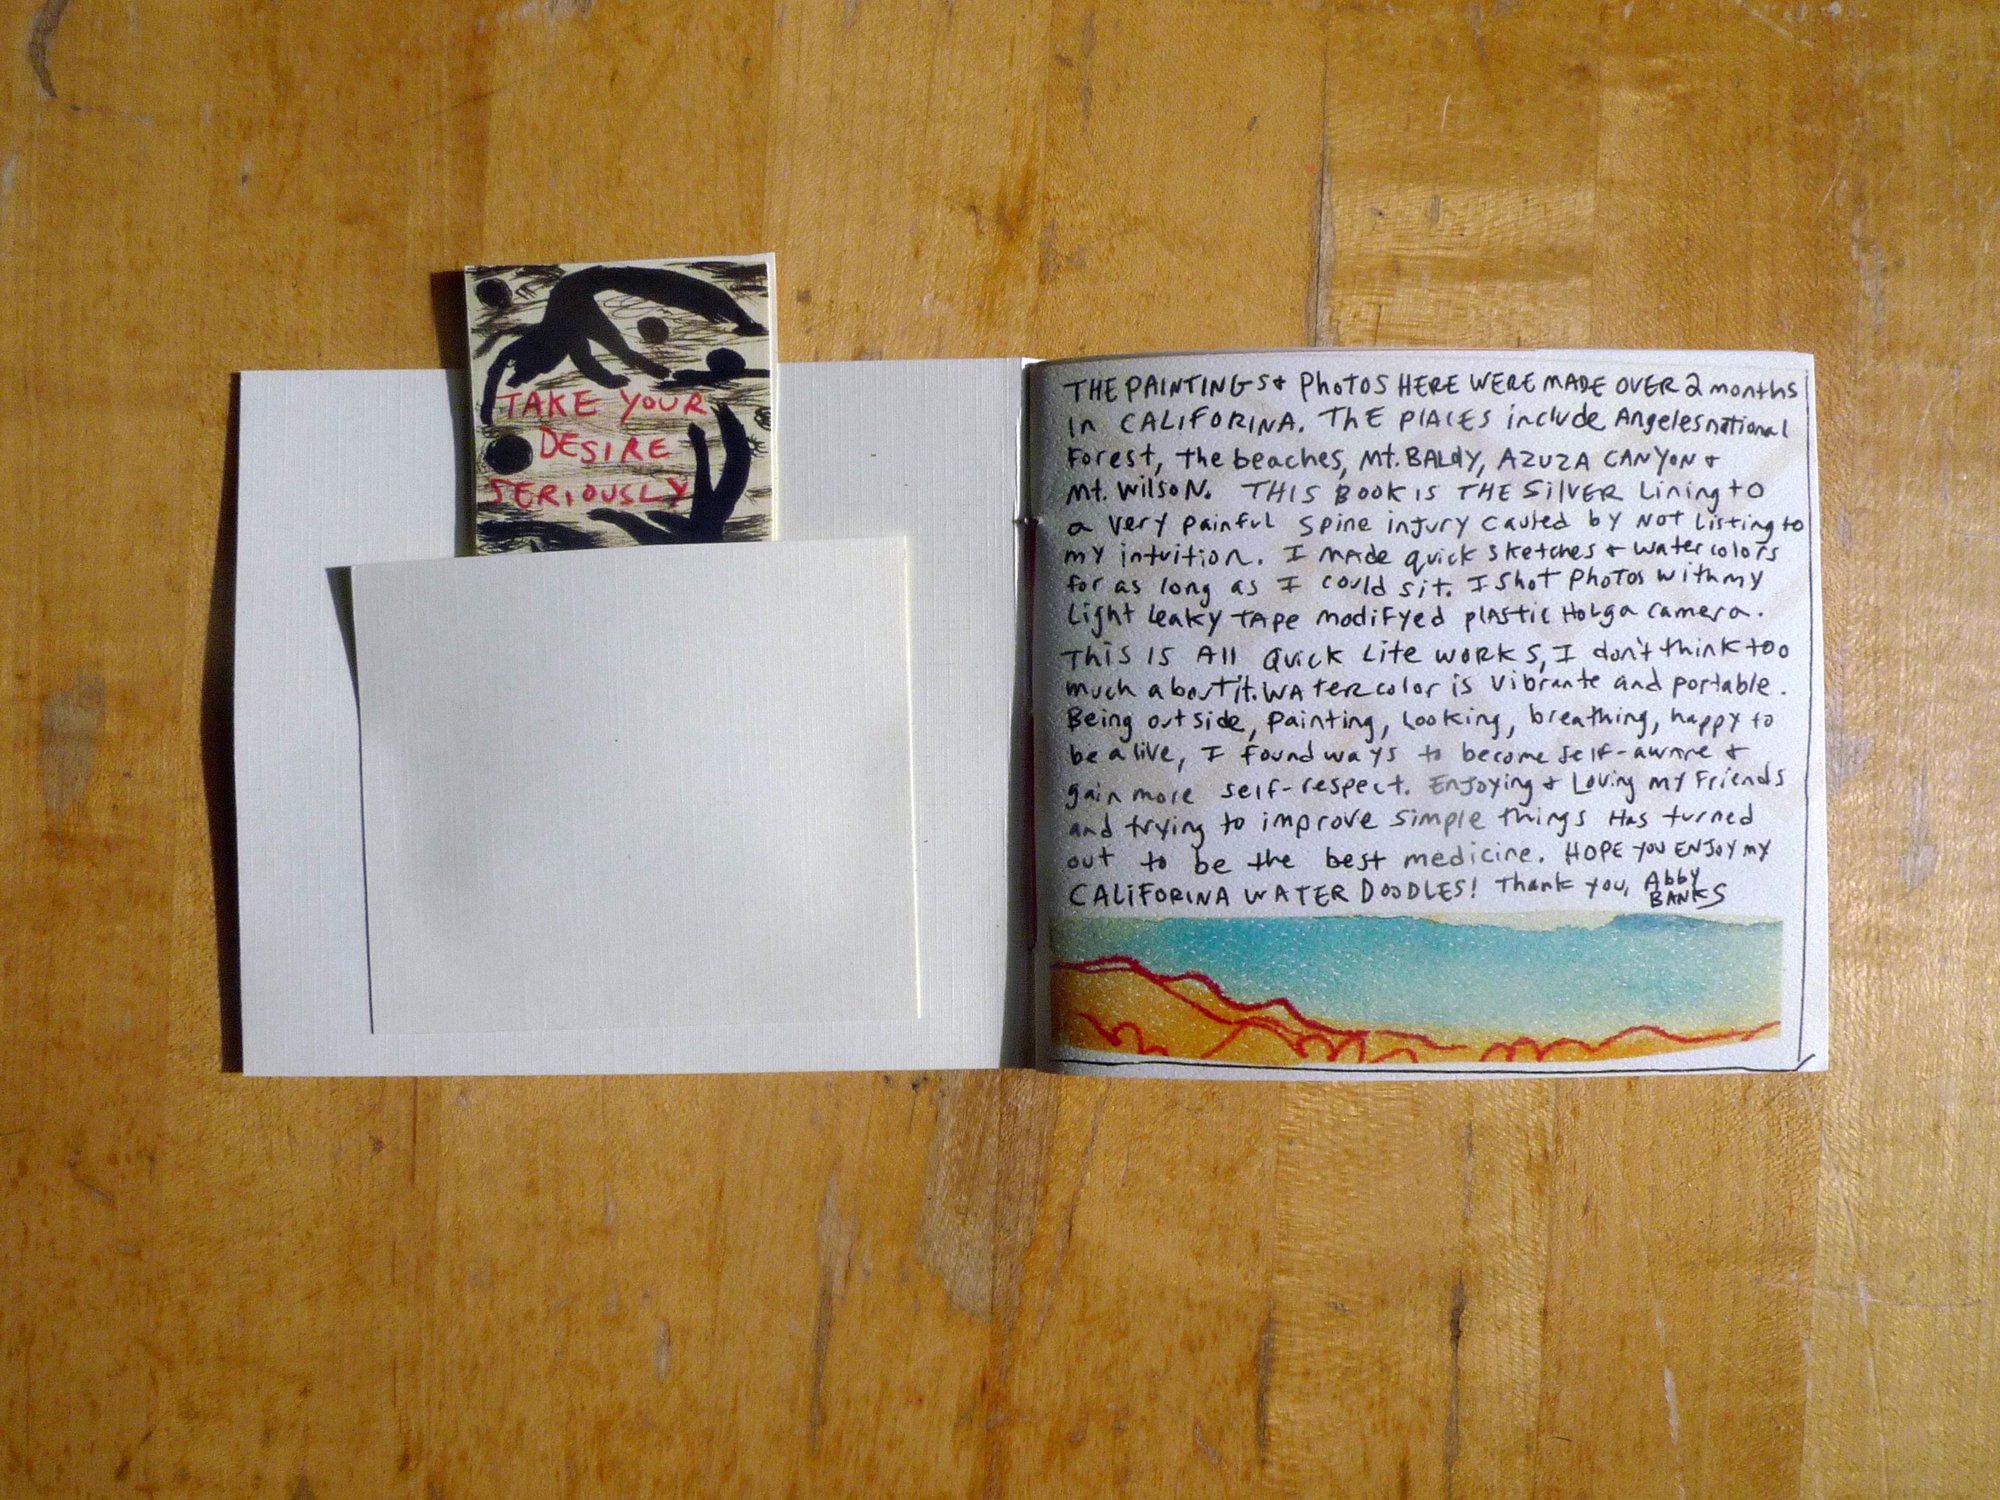 TAKE YOUR
DESIRE
SERIOUSLY
THE PAINTINGS & PhOTOS HERE WERE MADE OVER 2 months
in CALIFORINA. THE PlACES include Angeles national
Forest, the beaches, Mt. BALdy, AZUZA CANYON &
Mt. WilsoN. THIS BOOK IS THE SilVER Lining to
a very painful spine injury caused by NOT Listing to
my intuition. I MADE quick sketches & watercolors
for as long as I could sit. I SHOT PHOTOS with my
Light leaky TAPe modifyed plAStic Holga camera.
THiS IS All Quick Lite WORKS, I don't think too
much about it. WATERcolor is Vibrante and portable.
Being outside, painting, Looking, breathing, happy to
be alive, I found ways to become self-aware &
gain more self-respect. Enjoying & Loving my Friends
and trying to improve simple things Has turned
out to be the best medicine. HOPE YOU ENJOY my
CALIFORINA WATER DOODLES! Thank you, Abby
BANKS